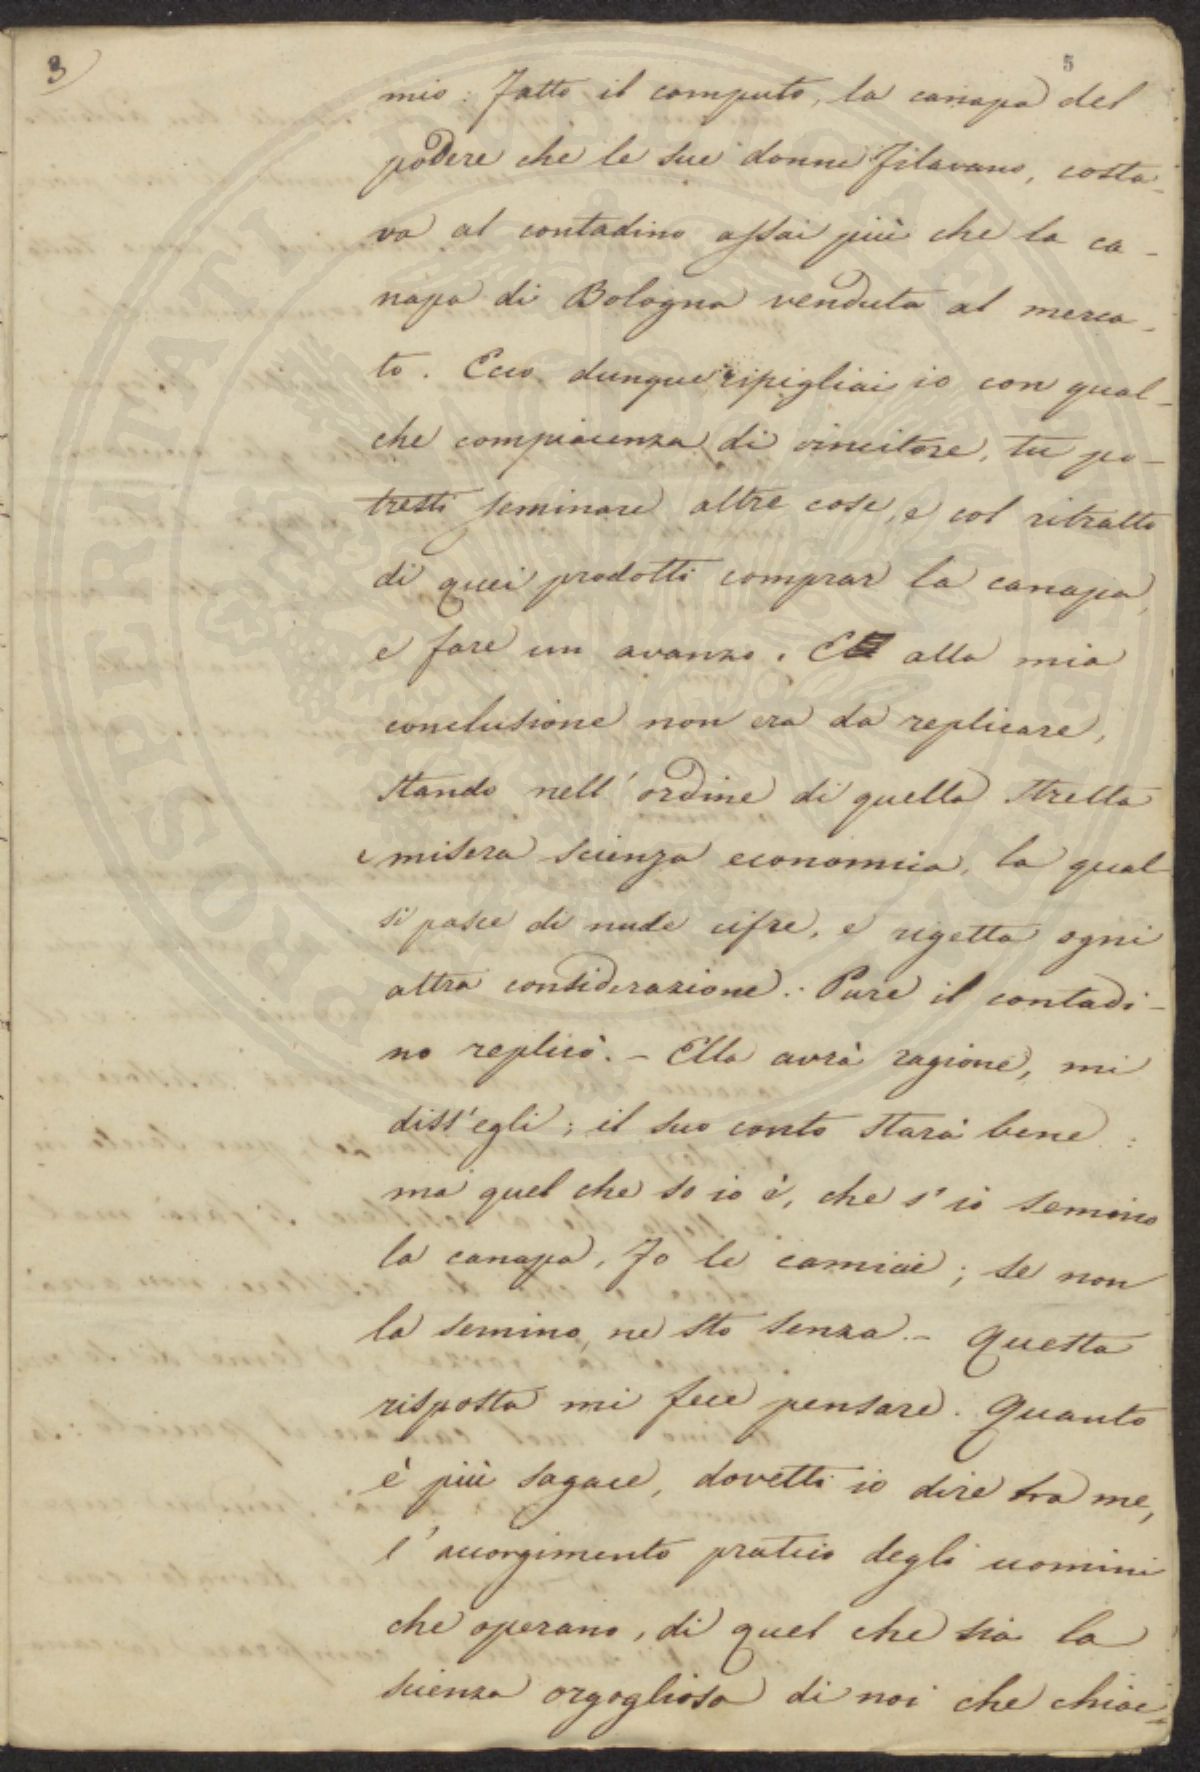 3
5
mio. Fatto il computo, la canapa del
podere che le sue donne filavano, costa-
va al contadino assai più che la ca-
napa di Bologna venduta al merca-
to. Ecco dunque ripigliai io con qual-
che compiacenza di vincitore, tu po-
tresti seminare altre cose, e col ritratto
di quei prodotti comprar la canapa,
e fare un avanzo. E alla mia
conclusione non era da replicare,
stando nell'ordine di quella stretta
e misera scienza economica, la qual
si pasce di nude cifre, e rigetta ogni
altra considerazione. Pure il contadi-
no replicò. – Ella avrà ragione, mi
diss'egli; il suo conto starà bene:
ma quel che so io è, che s'io semino
la canapa, fo le camicie; se non
la semino, ne sto senza. – Questa
risposta mi fece pensare. Quanto
è più sagace, dovetti io dire tra me,
l'accorgimento pratico degli uomini
che operano, di quel che sia la
scienza orgogliosa di noi che chiac-
PROSPERITATI PUBLICAE AUGENDAE